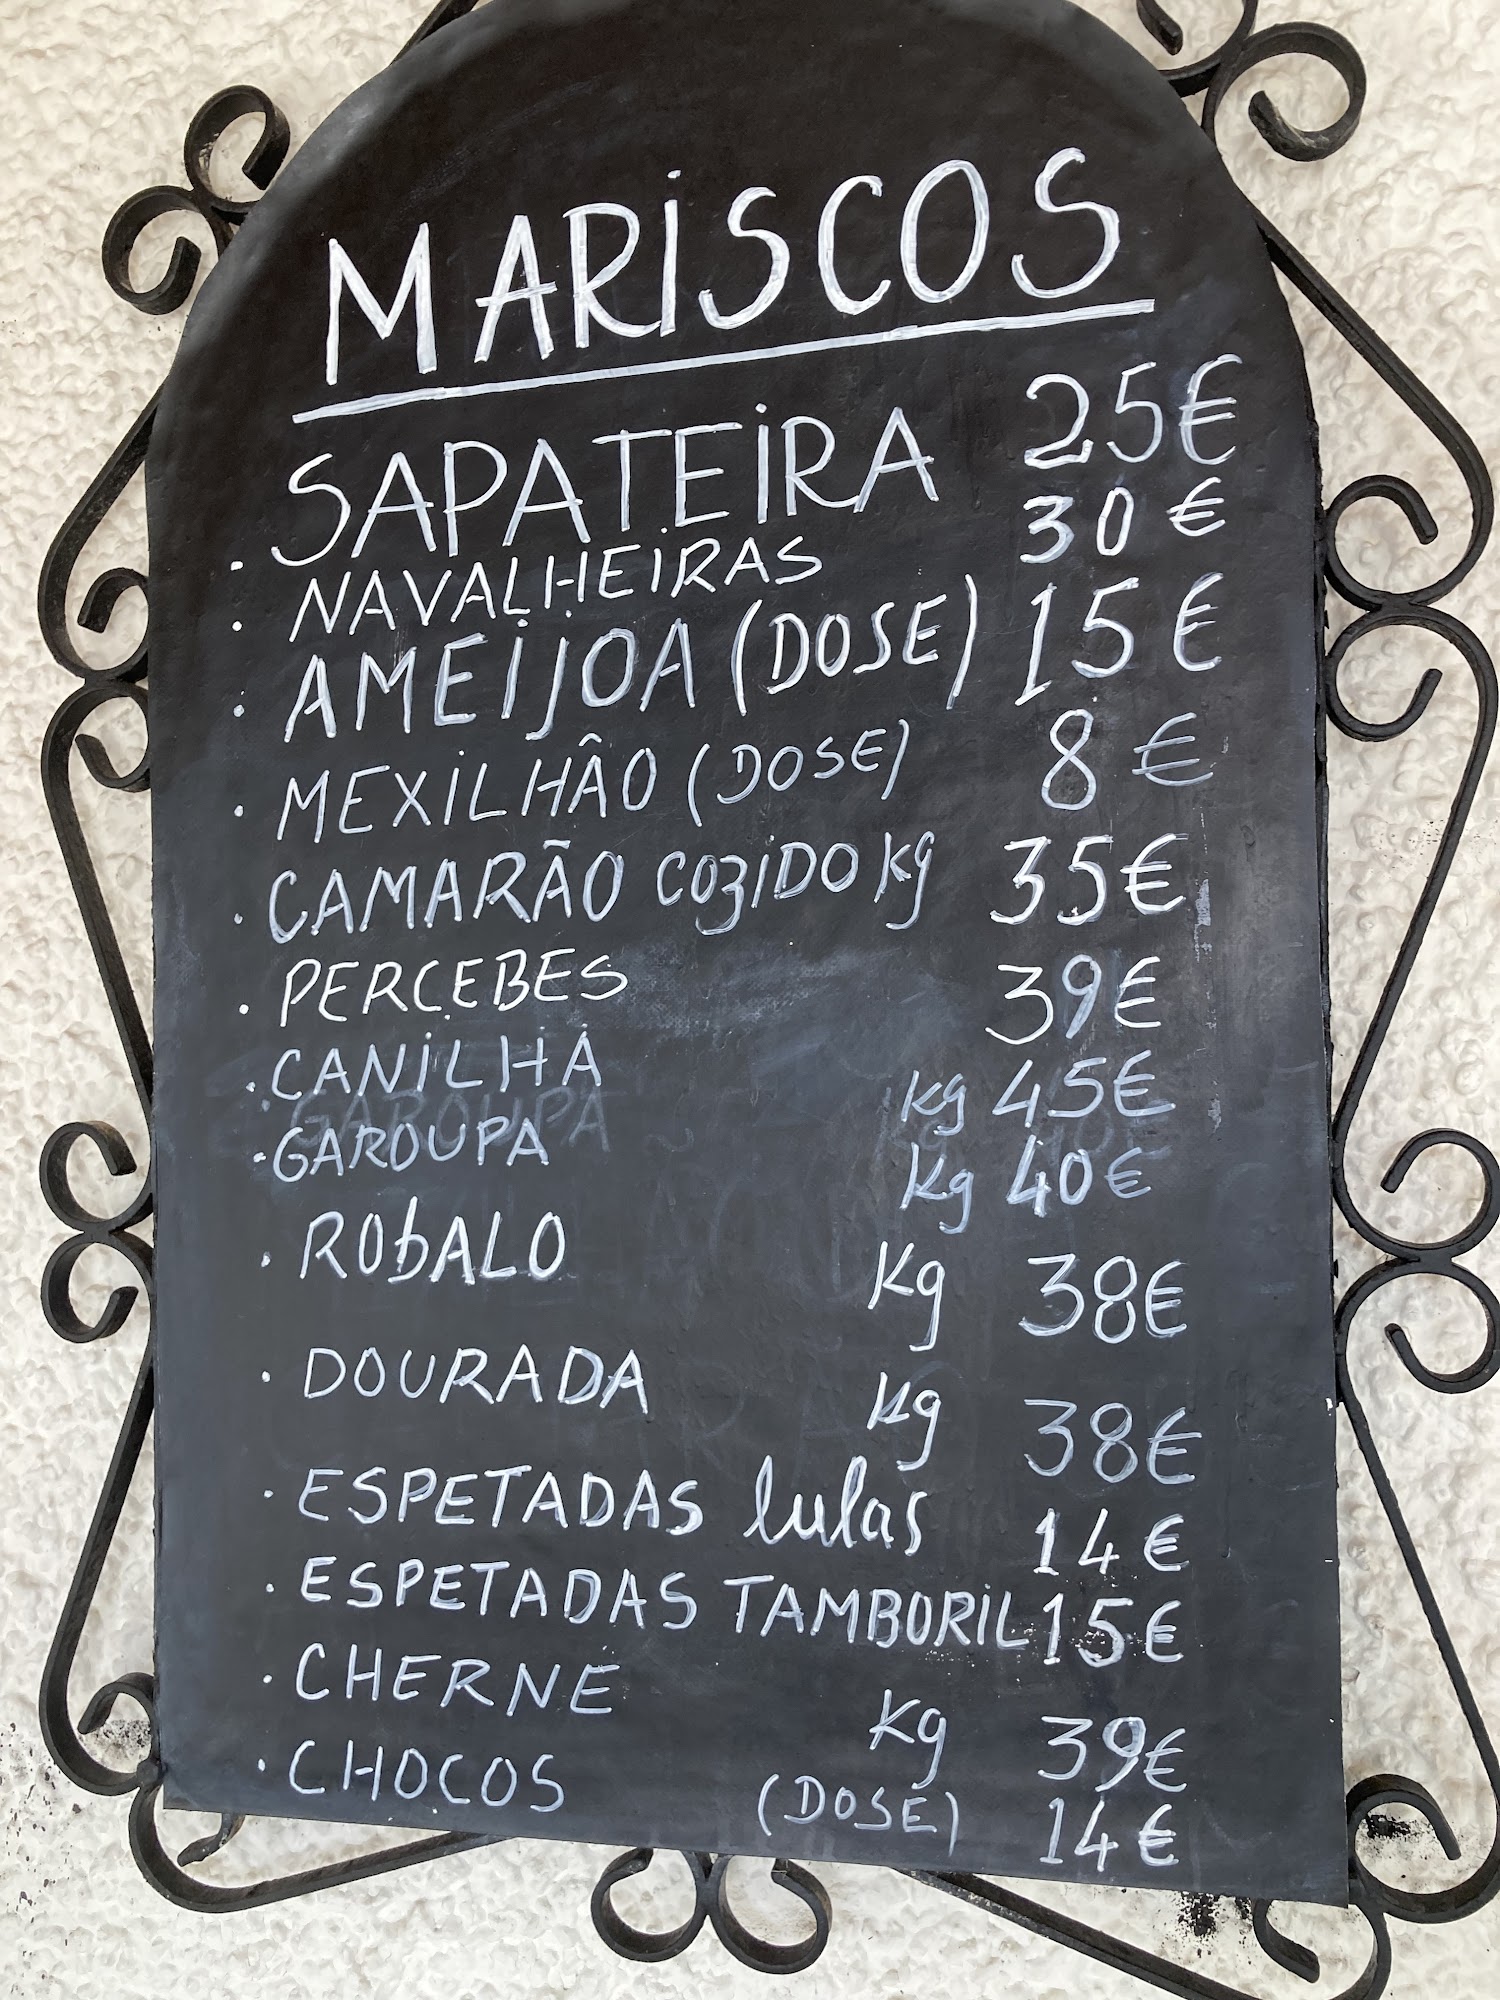 MARISCOS
. SAPATEIRA 25€
. NAVALHEIRAS 30€
. AMEIJOA (DOSE) 15€
. MEXILHÂO (DOSE) 8€
. CAMARÃO COZIDO Kg 35€
. PERCEBES 39€
. CANILHA Kg 45€
. GAROUPA Kg 40€
. ROBALO Kg 38€
. DOURADA Kg 38€
. ESPETADAS lulas 14€
. ESPETADAS TAMBORIL 15€
. CHERNE Kg 39€
. CHOCOS (DOSE) 14€